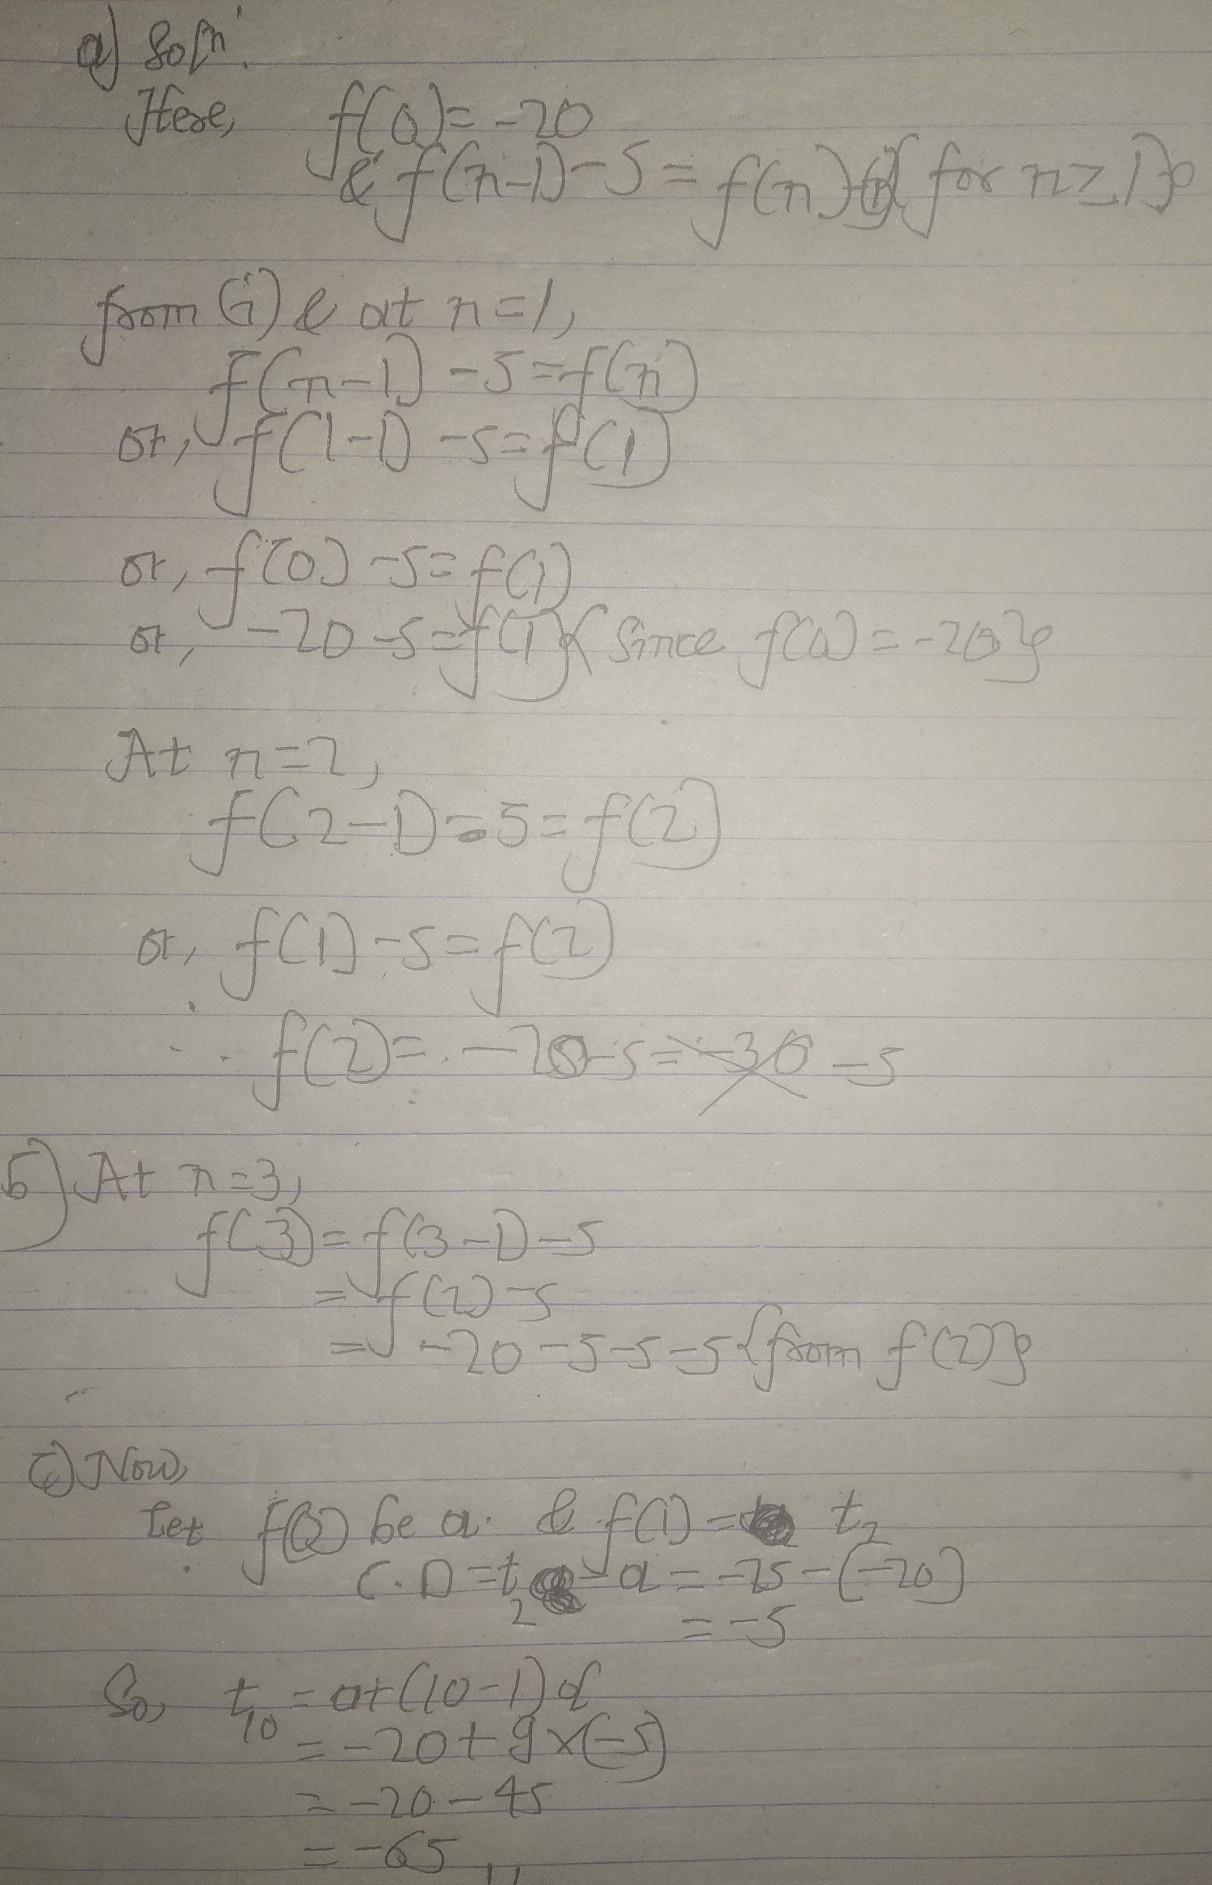 a) Soln.
Here, f(0)= -20
& f(n-1)-5 = f(n) (i) { for n≥1}
from (i) & at n=1,
f(n-1) -5=f(n)
or, f(1-1) -5=f(1)
or, f(0) -5=f(1)
or, -20-5=f(1) { Since f(0) = -20}
At n=2,
f(2-1)-5=f(2)
or, f(1)-5=f(2)
∴ f(2)= -20-5 = -30 -5
b) At n=3,
f(3)=f(3-1)-5
= f(2)-5
= -20-5-5-5 {from f(2)}
c) Now,
Let f(0) be a. & f(1) = t2
C.D=t2-a= -25-(-20)
= -5
So, t10 = a+(10-1)d
= -20+9×(-5)
= -20-45
= -65,,